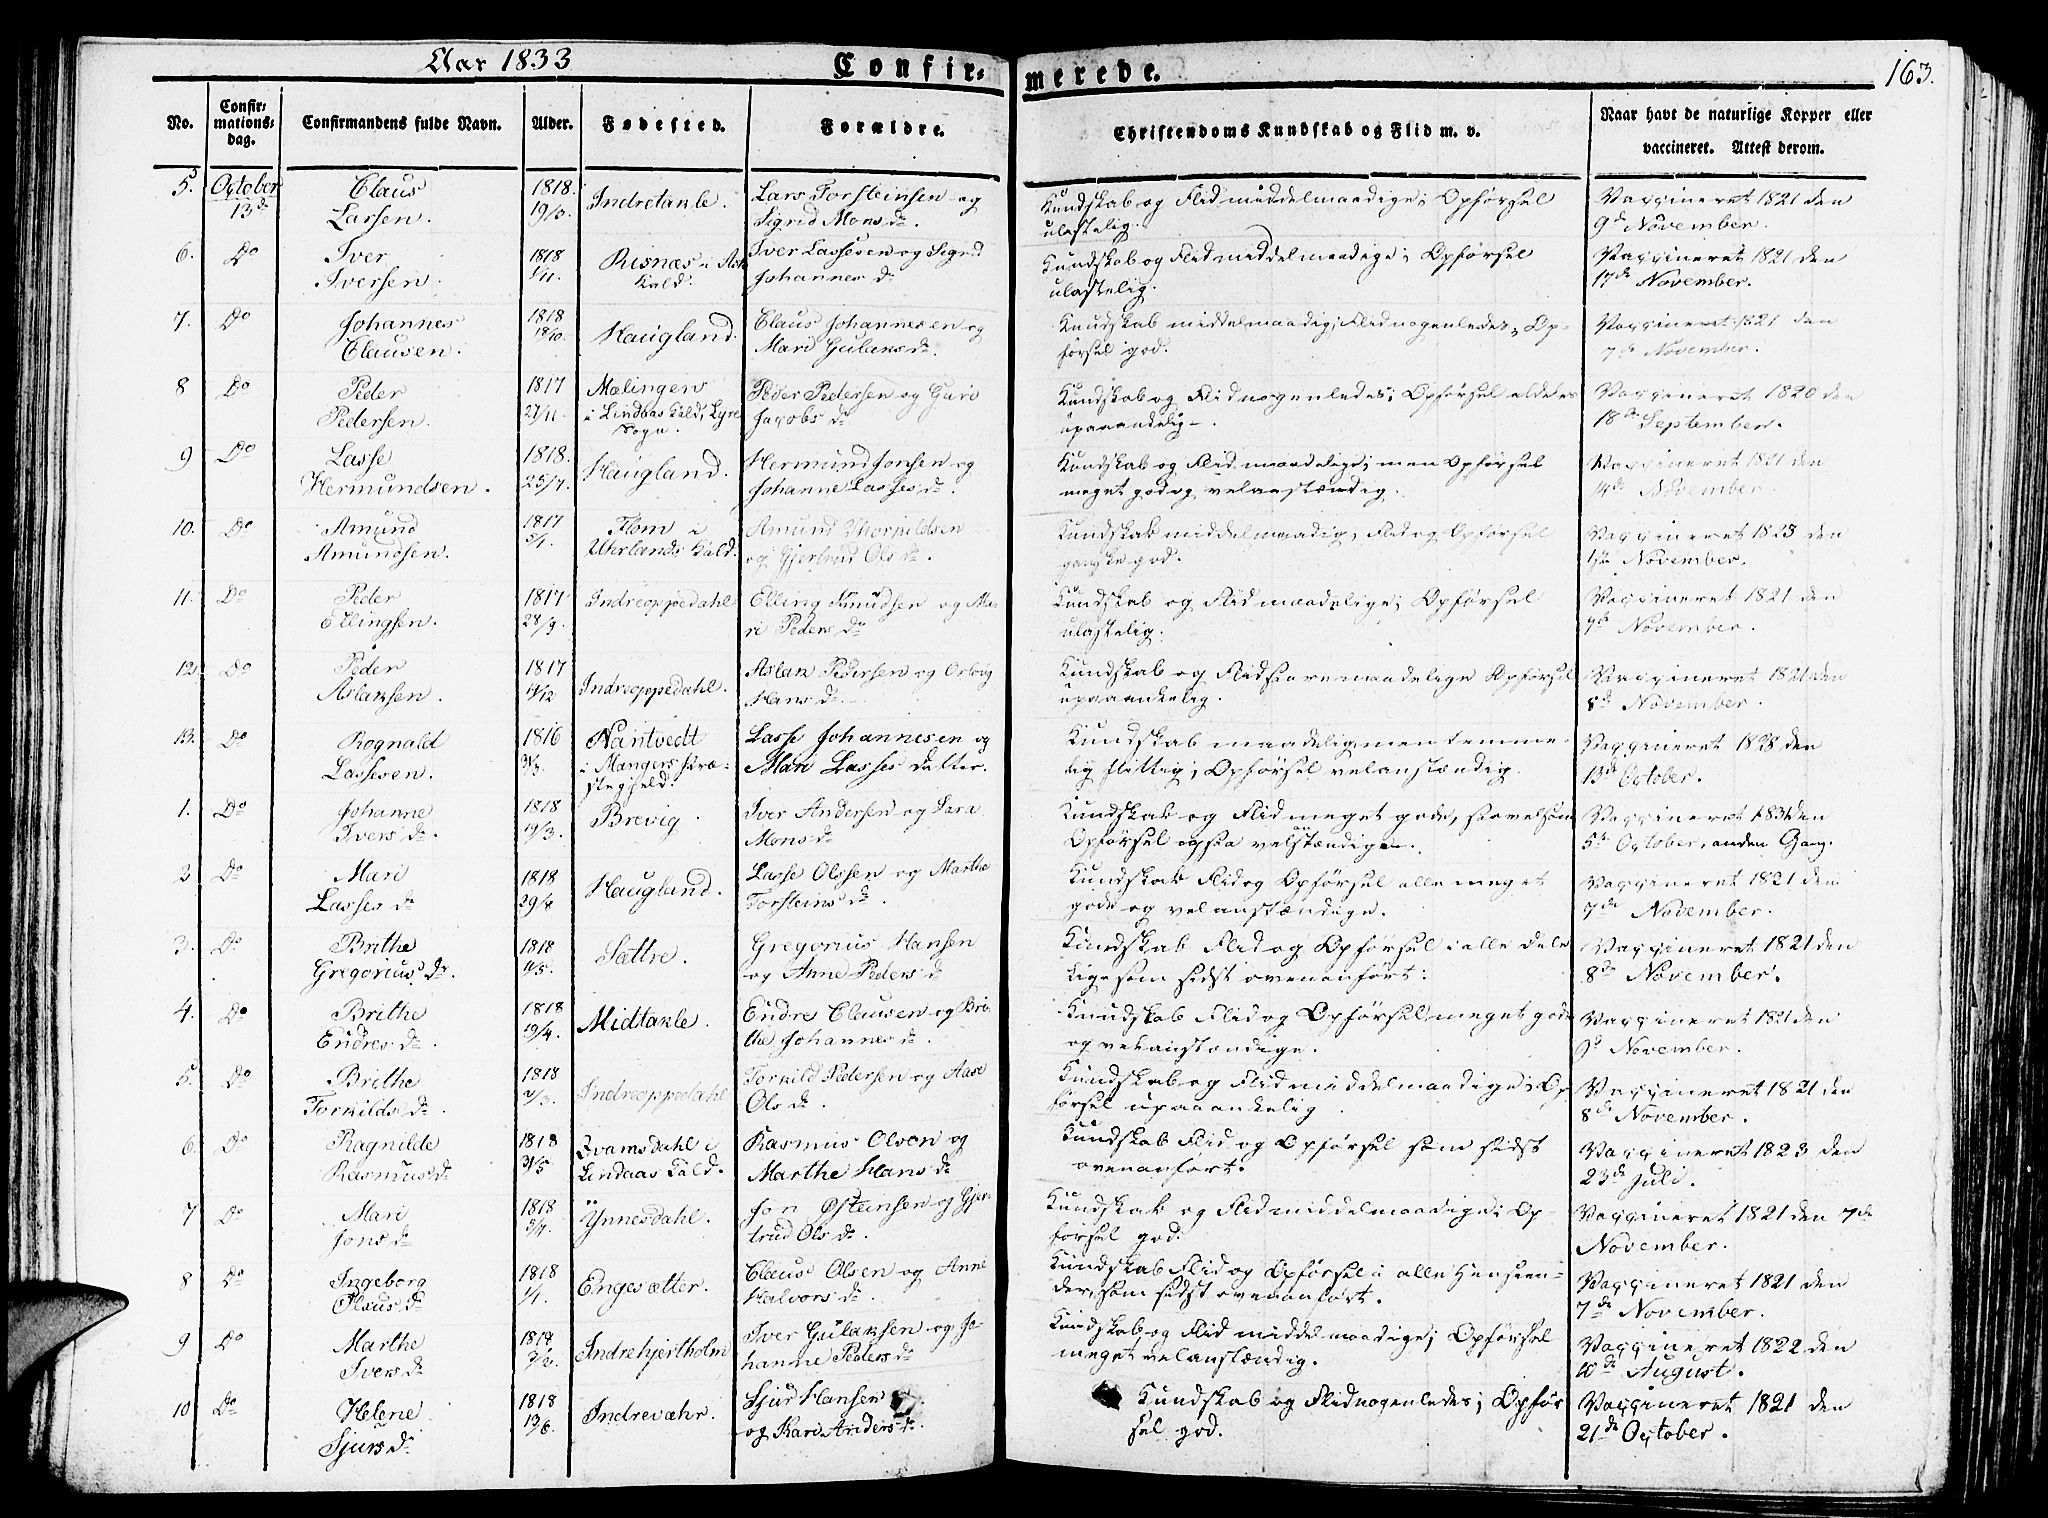 Aar 1833 Confirmerede. 163.
No. Confirmationsdag. Confirmandens fulde Navn. Alder. Fødested. Forældre. Christendoms Kundskab og Flid m. v. Naar havt de naturlige Kopper eller vaccineret. Attest derom.
5. October 13de Claus Larsen. 1818. 19/3. Indretakle. Lars Torsteinsen og Sigrid Mons Dr. Kundskab og Flid middelmaadige; Opførsel ulastelig. Vaccineret 1821 den 9d November.
6. Do Iver Iversen. 1818 1/11. Risnæs i Kald. Iver Lassesen og Sigrid Johannes Dr Kundskab og Flid middelmaadige; Opførsel ulastelig. Vaccineret 1821 den 17de November.
7. Do Johannes Clausen. 1818 18/10. Haugland. Claus Johannesen og Mari Gulaks Dr. Kundskab middelmaadig; Flid nogenledes; Opførsel god. Vaccineret 1821 den 7de November.
8 Do Peder Pedersen. 1817 27/11. Mælingen i Lindaas Kald, Sogn. Peder Pedersen og Guro Jacobs Dr Kundskab og Flid nogenledes; Opførsel aldeles upaaandelig. Vaccineret 1820 den 18de September.
9 Do Lasse Hermundsen. 1818. 25/7. Haugland. Hermund Jonsen og Johanne Lasses Dr. Kundskab og Flid maadelige; men Opførsel meget god og velanstændig. Vaccineret 1821 den 14de November
10. Do Amund Amundsen. 1817 5/1. Flom i Uhrlands Kald. Amund Thorkildsen og Gjertrud Ols Dr. Kundskab middelmaadig; Flid og Opførsel ganske god. Vaccineret 1823 den November.
11. Do Peder Ellingsen. 1817 28/9. Indreoppedahl Elling Knudsen og Mari Peders Dr Kundskab og Flid maadelige; Opførsel ulastelig. Vaccineret 1821 den 7de November.
12. Do Peder Aslaksen. 1817 14/12 Indreoppedahl. Aslak Pedersen og Hans Dr. Kundskab og Flid maadelige Opførsel upaaankelig. Vaccineret 1821 den 8de November.
13. Do Rognald Lassesen. 1816 31/3. Nantvedt i Mangers Præstegjeld. Lasse Johannesen og Mari Lasses Datter. Kundskab maadelig men temmelig flittig; Opførsel velanstændig. Vaccineret 1828 den 13de October.
1. Do Johanne Ivers Dr. 1818 19/3. Brevig. Iver Andersen og Sara Mons Dr Kundskab og Flid meget gode, saavelsom Opførsel ogsaa velanstændig. Vaccineret 1831 den 5te October, anden Gang.
2 Do Mari Lasses Dr 1818 29/8 Haugland. Lasse Olssen og Marthe Torsteins Dr. Kundskab Flid og Opførsel alle meget gode og velanstændige. Vaccineret 1821 den 7de November.
3. Do Brithe Gregorius Dr. 1818 11/5. Sættre. Gregorius Hansen og Anne Peders Dr Kundskab Flid og Opførsel i alle Dele ligesom sidst ovenanført. Vaccineret 1821 den 8de November.
4. Do Brithe Endres Dr. 1818 19/4. Midtakle. Endre Clausen og Brithe Johannes Dr. Kundskab Flid og Opførsel meget gode og velanstændige. Vaccineret 1821 den 9d November.
5. Do Brithe Torkilds Dr. 1818 2/3. Indreoppedahl Torkild Pedersen og Aase Ols Dr. Kundskab og Flid middelmaadige; Opførsel upaaankelig. Vaccineret 1821 den 8de November.
6. Do Ragnilde Rasmus Dr 1818 31/5 Qvamsdahl i Lindaas Kald. Rasmus Olsen og Marthe Hans Dr Kundskab Flid og Opførsel som sidst ovenanført. Vaccineret 1823 den 23de Juli.
7 Do Mari Jons Dr 1818 5/4. Ynnesdahl. Jon Østeinsen og Gjertrud Ols Dr. Kundskab og Flid middelmaadige; Opførsel god. Vaccineret 1821 den 7de November.
8 Do Ingeborg Claus Dr 1818 1/1. Engesætter. Claus Olsen og Anne Halvors Dr. Kundskab Flid og Opførsel i alle Henseender, som sidst ovenanført. Vaccineret 1821 den 7de November.
9 Do Marthe Ivers Dr 1818 Indrehjertholm Iver Gulaksen og Johanne Peders Dr Kundskab og Flid middelmaadige; Opførsel meget velanstændig. Vaccineret 1822 den 10de August.
10 Do Helene Sjurs Dr 1818 13/6. Indrevæhr. Sjur Hansen og Kari Anders Dr. Kundskab og Flid nogenledes; Opførsel god. Vaccineret 1821 den 21de October.